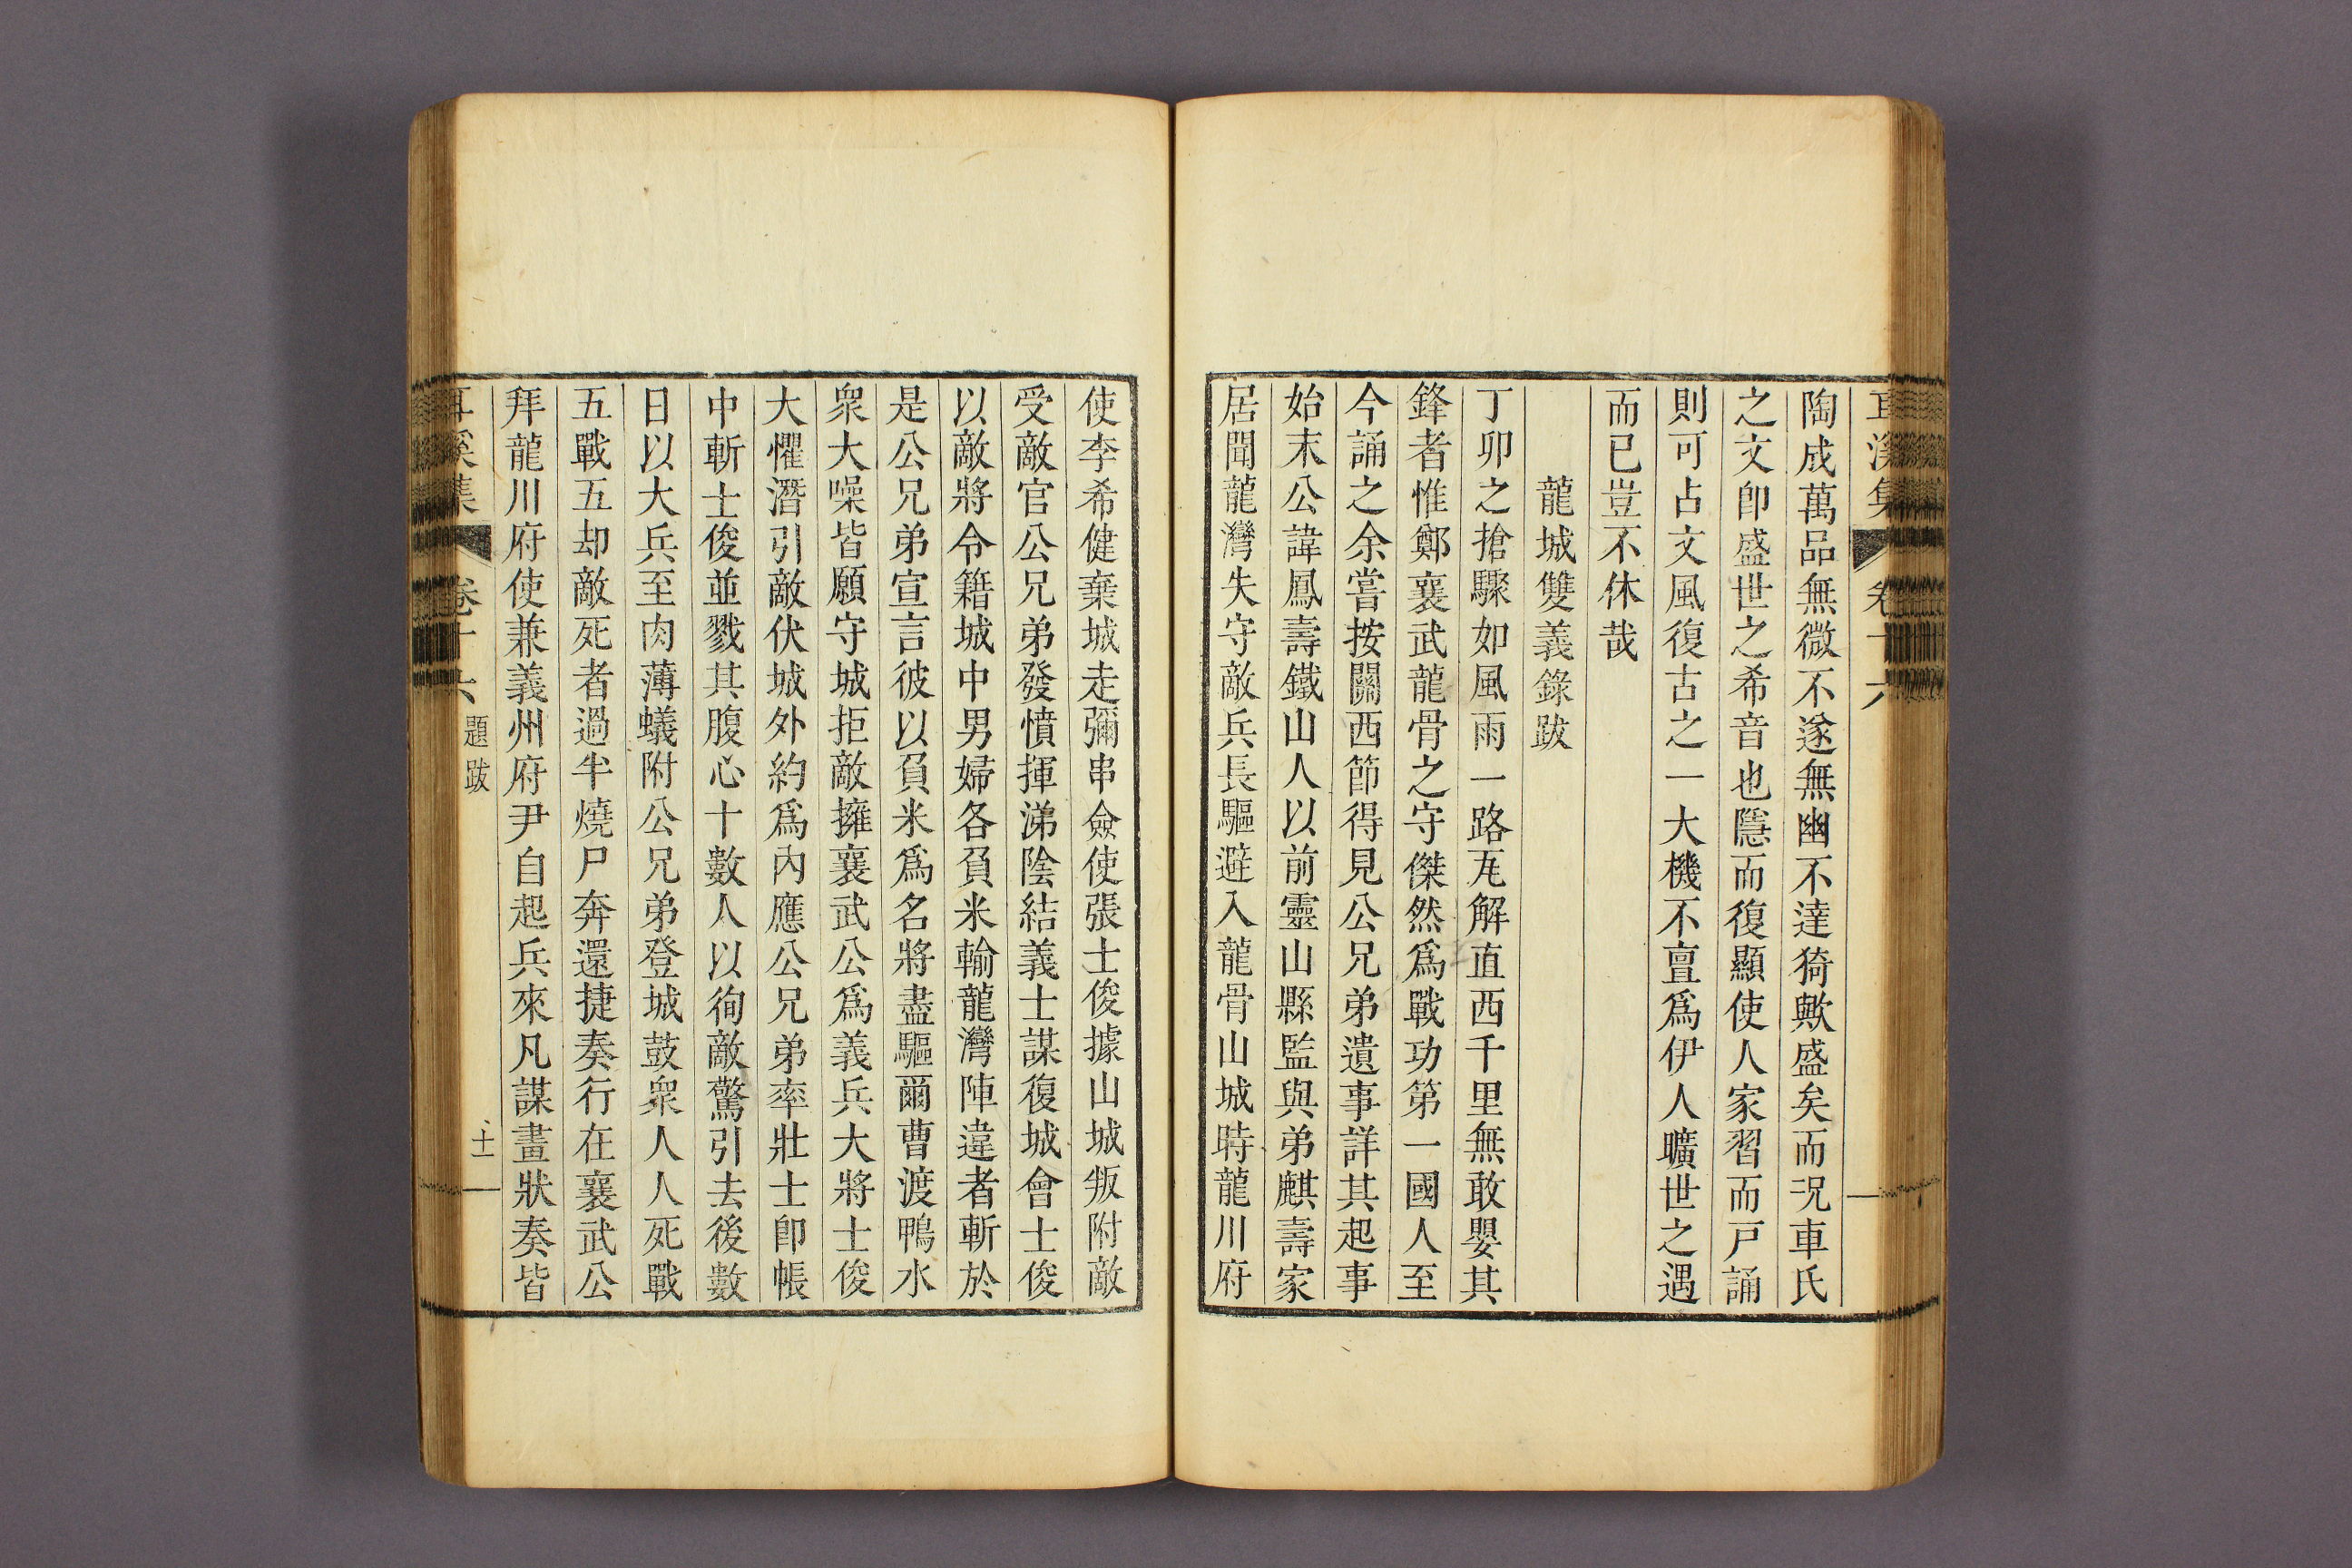 耳溪集 卷十六
陶成萬品無微不遂無幽不達猗歟盛矣而況車氏
之文卽盛世之希音也隱而復顯使人家習而戶誦
則可占文風復古之一大機不亶爲伊人曠世之遇
而已豈不休哉
龍城雙義錄跋
丁卯之搶驟如風雨一路瓦解直西千里無敢嬰其
鋒者惟鄭襄武龍骨之守傑然爲戰功第一國人至
今誦之余嘗按關西節得見公兄弟遺事詳其起事
始末公諱鳳壽鐵山人以前靈山縣監與弟麒壽家
居聞龍灣失守敵兵長驅避入龍骨山城時龍川府
使李希健棄城走彌串僉使張士俊據山城叛附敵
受敵官公兄弟發憤揮涕陰結義士謀復城會士俊
以敵將令籍城中男婦各負米輸龍灣陣違者斬於
是公兄弟宣言彼以負米爲名將盡驅爾曹渡鴨水
衆大噪皆願守城拒敵擁襄武公爲義兵大將士俊
大懼潛引敵伏城外約爲內應公兄弟率壯士卽帳
中斬士俊並戮其腹心十數人以徇敵驚引去後數
日以大兵至肉薄蟻附公兄弟登城鼓衆人人死戰
五戰五却敵死者過半燒尸奔還捷奏行在襄武公
拜龍川府使兼義州府尹自起兵來凡謀畫狀奏皆
耳溪集 卷十六 題跋 十一